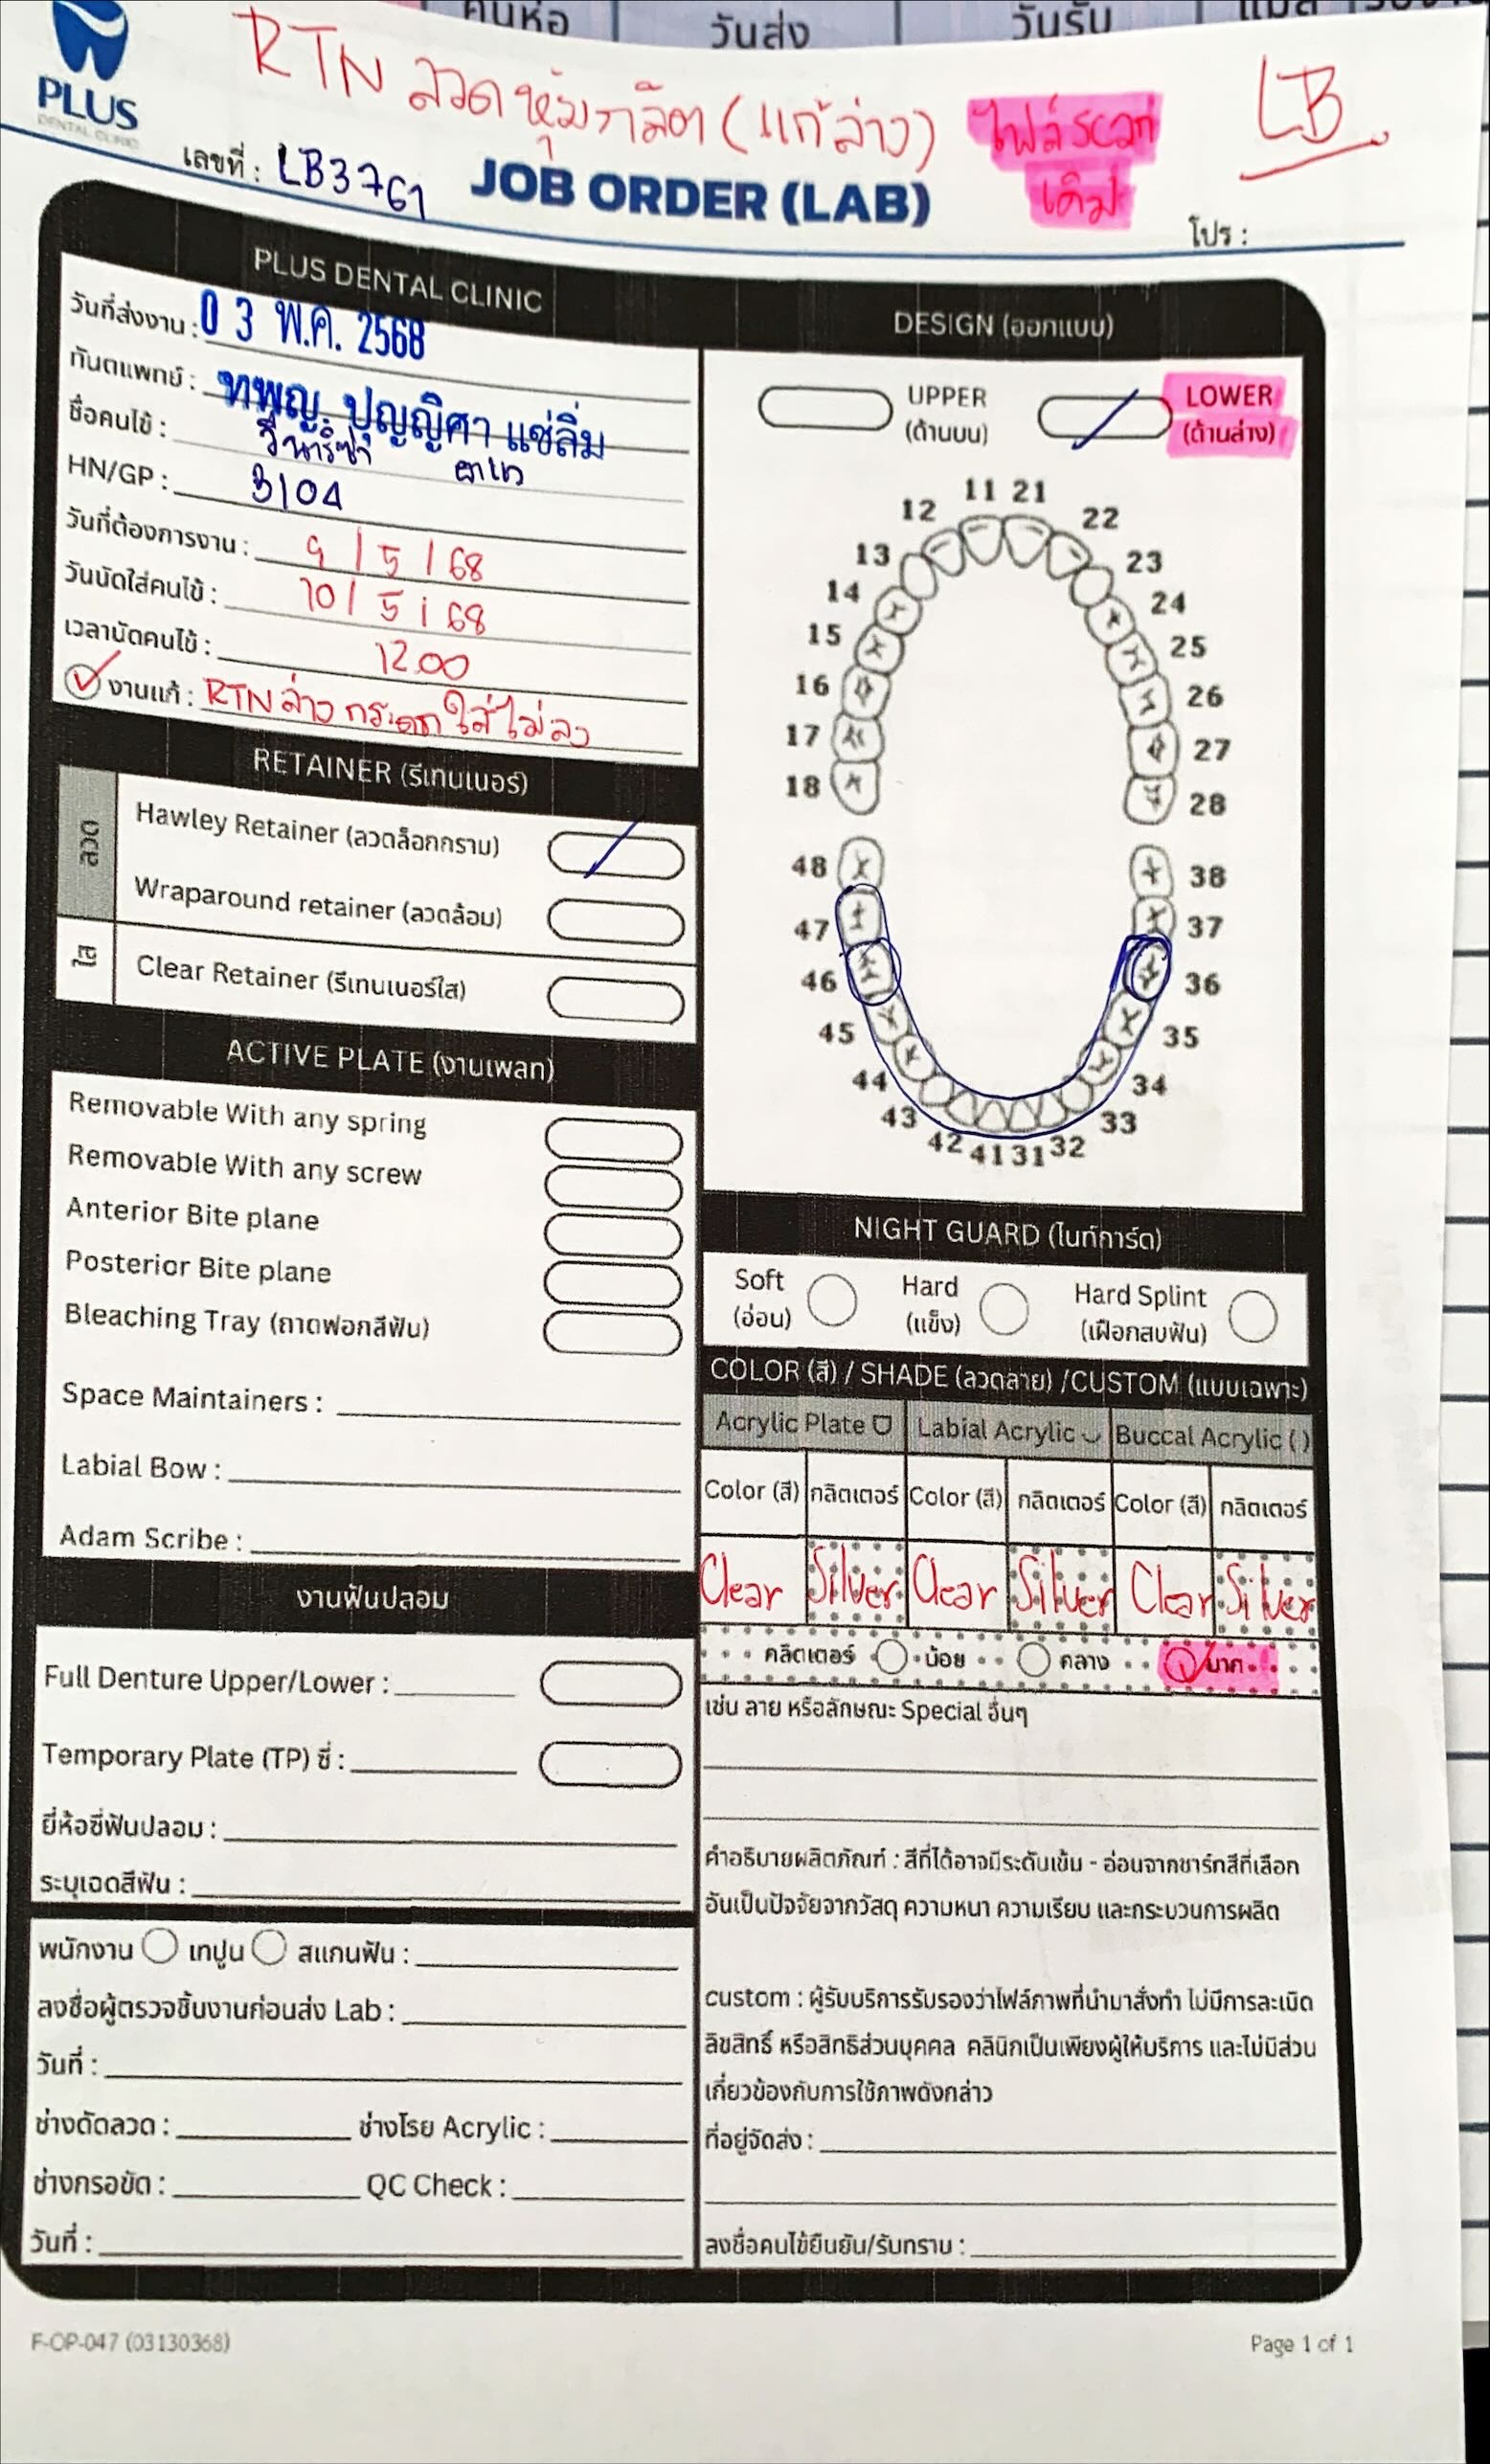 คนห่อ วันส่ง วันรับ
RTN ลวดหุ้มกลิต (แก้ล่าง) ไฟล์scan เดิม LB
PLUS
DENTAL CLINIC
เลขที่ : LB3761 JOB ORDER (LAB)
โปร :
PLUS DENTAL CLINIC
วันที่ส่งงาน : 03 พ.ค. 2568
ทันตแพทย์ : ทพญ. ปุญญิศา แซ่ลิ่ม
ชื่อคนไข้ :
HN/GP : 3104
วันที่ต้องการงาน : 9 / 5 / 68
วันนัดใส่คนไข้ : 10 / 5 / 68
เวลานัดคนไข้ : 12.00
งานแก้ : RTN ล่าง กระดก ใส่ไม่ลง
RETAINER (รีเทนเนอร์)
ลวด
Hawley Retainer (ลวดล็อกกราม)
Wraparound retainer (ลวดล้อม)
ใส
Clear Retainer (รีเทนเนอร์ใส)
ACTIVE PLATE (งานเพลท)
Removable With any spring
Removable With any screw
Anterior Bite plane
Posterior Bite plane
Bleaching Tray (ถาดฟอกสีฟัน)
Space Maintainers :
Labial Bow :
Adam Scribe :
งานฟันปลอม
Full Denture Upper/Lower :
Temporary Plate (TP) ซี่ :
ยี่ห้อซี่ฟันปลอม :
ระบุเฉดสีฟัน :
พนักงาน เทปูน สแกนฟัน :
ลงชื่อผู้ตรวจชิ้นงานก่อนส่ง Lab :
วันที่ :
ช่างดัดลวด : ช่างโรย Acrylic :
ช่างกรอขัด : QC Check :
วันที่ :
DESIGN (ออกแบบ)
UPPER (ด้านบน) LOWER (ด้านล่าง)
11 21
12 22
13 23
14 24
15 25
16 26
17 27
18 28
48 38
47 37
46 36
45 35
44 34
43 33
42 41 31 32
NIGHT GUARD (ไนท์การ์ด)
Soft (อ่อน) Hard (แข็ง) Hard Splint (เฝือกสบฟัน)
COLOR (สี) / SHADE (ลวดลาย) /CUSTOM (แบบเฉพาะ)
Acrylic Plate Labial Acrylic Buccal Acrylic ( )
Color (สี) กลิตเตอร์ Color (สี) กลิตเตอร์ Color (สี) กลิตเตอร์
Clear Silver Clear Silver Clear Silver
คลิตเตอร์ น้อย กลาง มาก
เช่น ลาย หรือลักษณะ Special อื่นๆ
คำอธิบายผลิตภัณฑ์ : สีที่ได้อาจมีระดับเข้ม - อ่อนจากชาร์กสีที่เลือก
อันเป็นปัจจัยจากวัสดุ ความหนา ความเรียบ และกระบวนการผลิต
custom : ผู้รับบริการรับรองว่าไฟล์ภาพที่นำมาสั่งทำ ไม่มีการละเมิด
ลิขสิทธิ์ หรือสิทธิส่วนบุคคล คลินิกเป็นเพียงผู้ให้บริการ และไม่มีส่วน
เกี่ยวข้องกับการใช้ภาพดังกล่าว
ที่อยู่จัดส่ง :
ลงชื่อคนไข้ยืนยัน/รับทราบ :
F-OP-047 (03130368)
Page 1 of 1